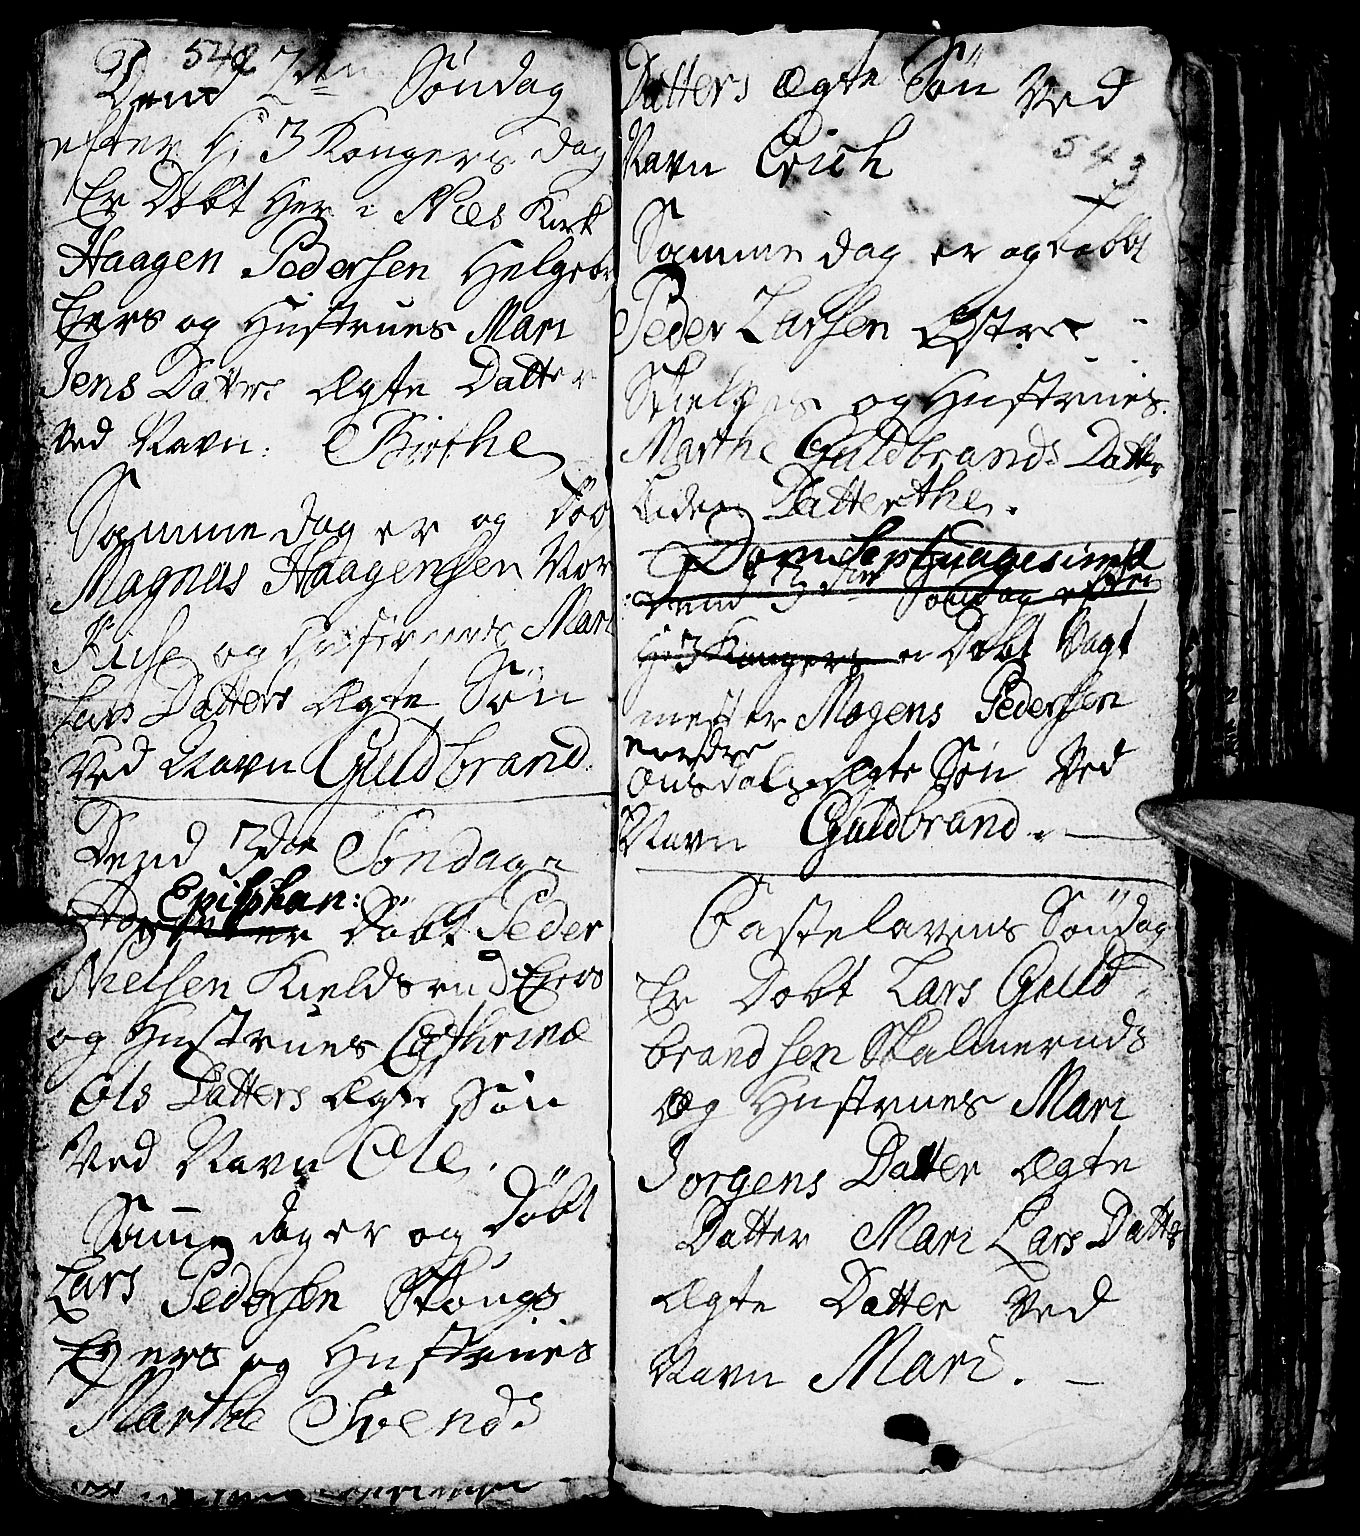 542
Dend 2den Söndag
efter H: 3 Kongers dag
Er Döbt Her i Næs Kirk
Haagen Pedersen Helgeby
Eyers og Hustrues Mari
Jens Datters Ægte Datter
Ved Navn: Birthe
Samme dag er og Döb
Magnus Haagensen Vor
og Hustrues Mari
Lars Datters Ægte Sön
Ved Navn Guldbrand.
Dend 3die Söndag
Epiphan:
er Döbt Peder
Nielsen Kieldsrud Eyers
og Hustrues Cathrinæ
Ols Datters Ægte Sön
Ved Navn Ole.
Samme dag er og Döbt
Lars Pedersen Skougs
Eyers og Hustrues
Marthe Svends
Datters Ægte Sön Ved
Navn Erich
543
Samme dag er og Döbt
Peder Larsen Östre
og Hustrues
Marthe Guldbrands Datter
Liden Datter
Dom Septuagesima
Dend 3die Söndag efter
H: 3 Kongers er Döbt Vagt
mester Mogens Pedersen
Onsdals Ægte Sön Ved
Navn Guldbrand.
Fastelavens Söndag
Er Döbt Lars Guld
brandsen Skalmeruds
og Hustrues Mari
Jorgens Datter Ægte
Datter Mari Lars Datter
Ægte Datter Ved
Navn Mari.